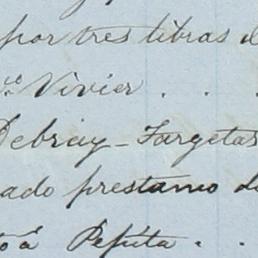 por tres libras d
Vivier . . .
Debray - Targetas
ado prestamo d
Pepita . .